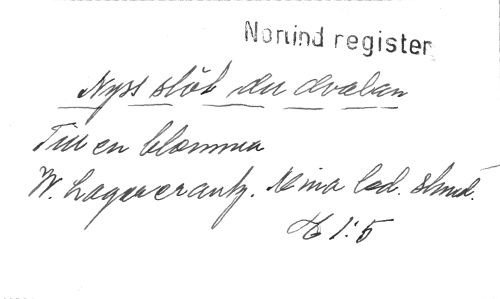 Norlind register
Nyss slöt du dvalan
Till en blomma
W. Lagercrantz. Mina led. stund.
H 1:5